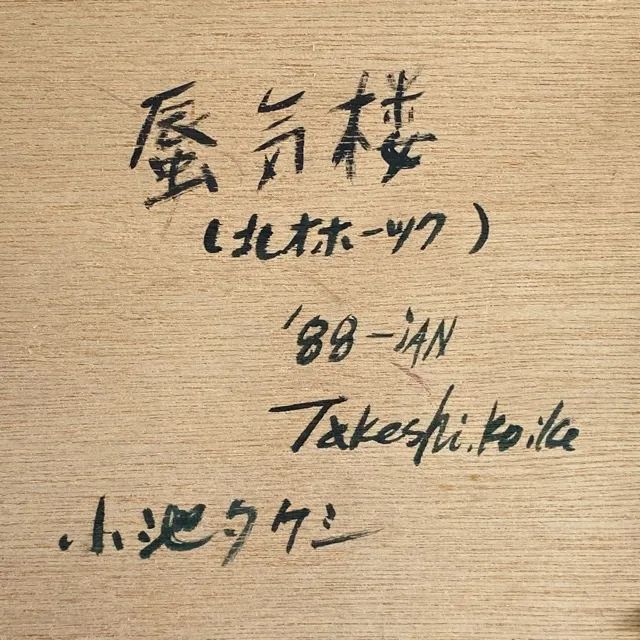 蜃気楼
(北オホーツク)
'88-iAN
Takeshi.Koike
小池タケシ